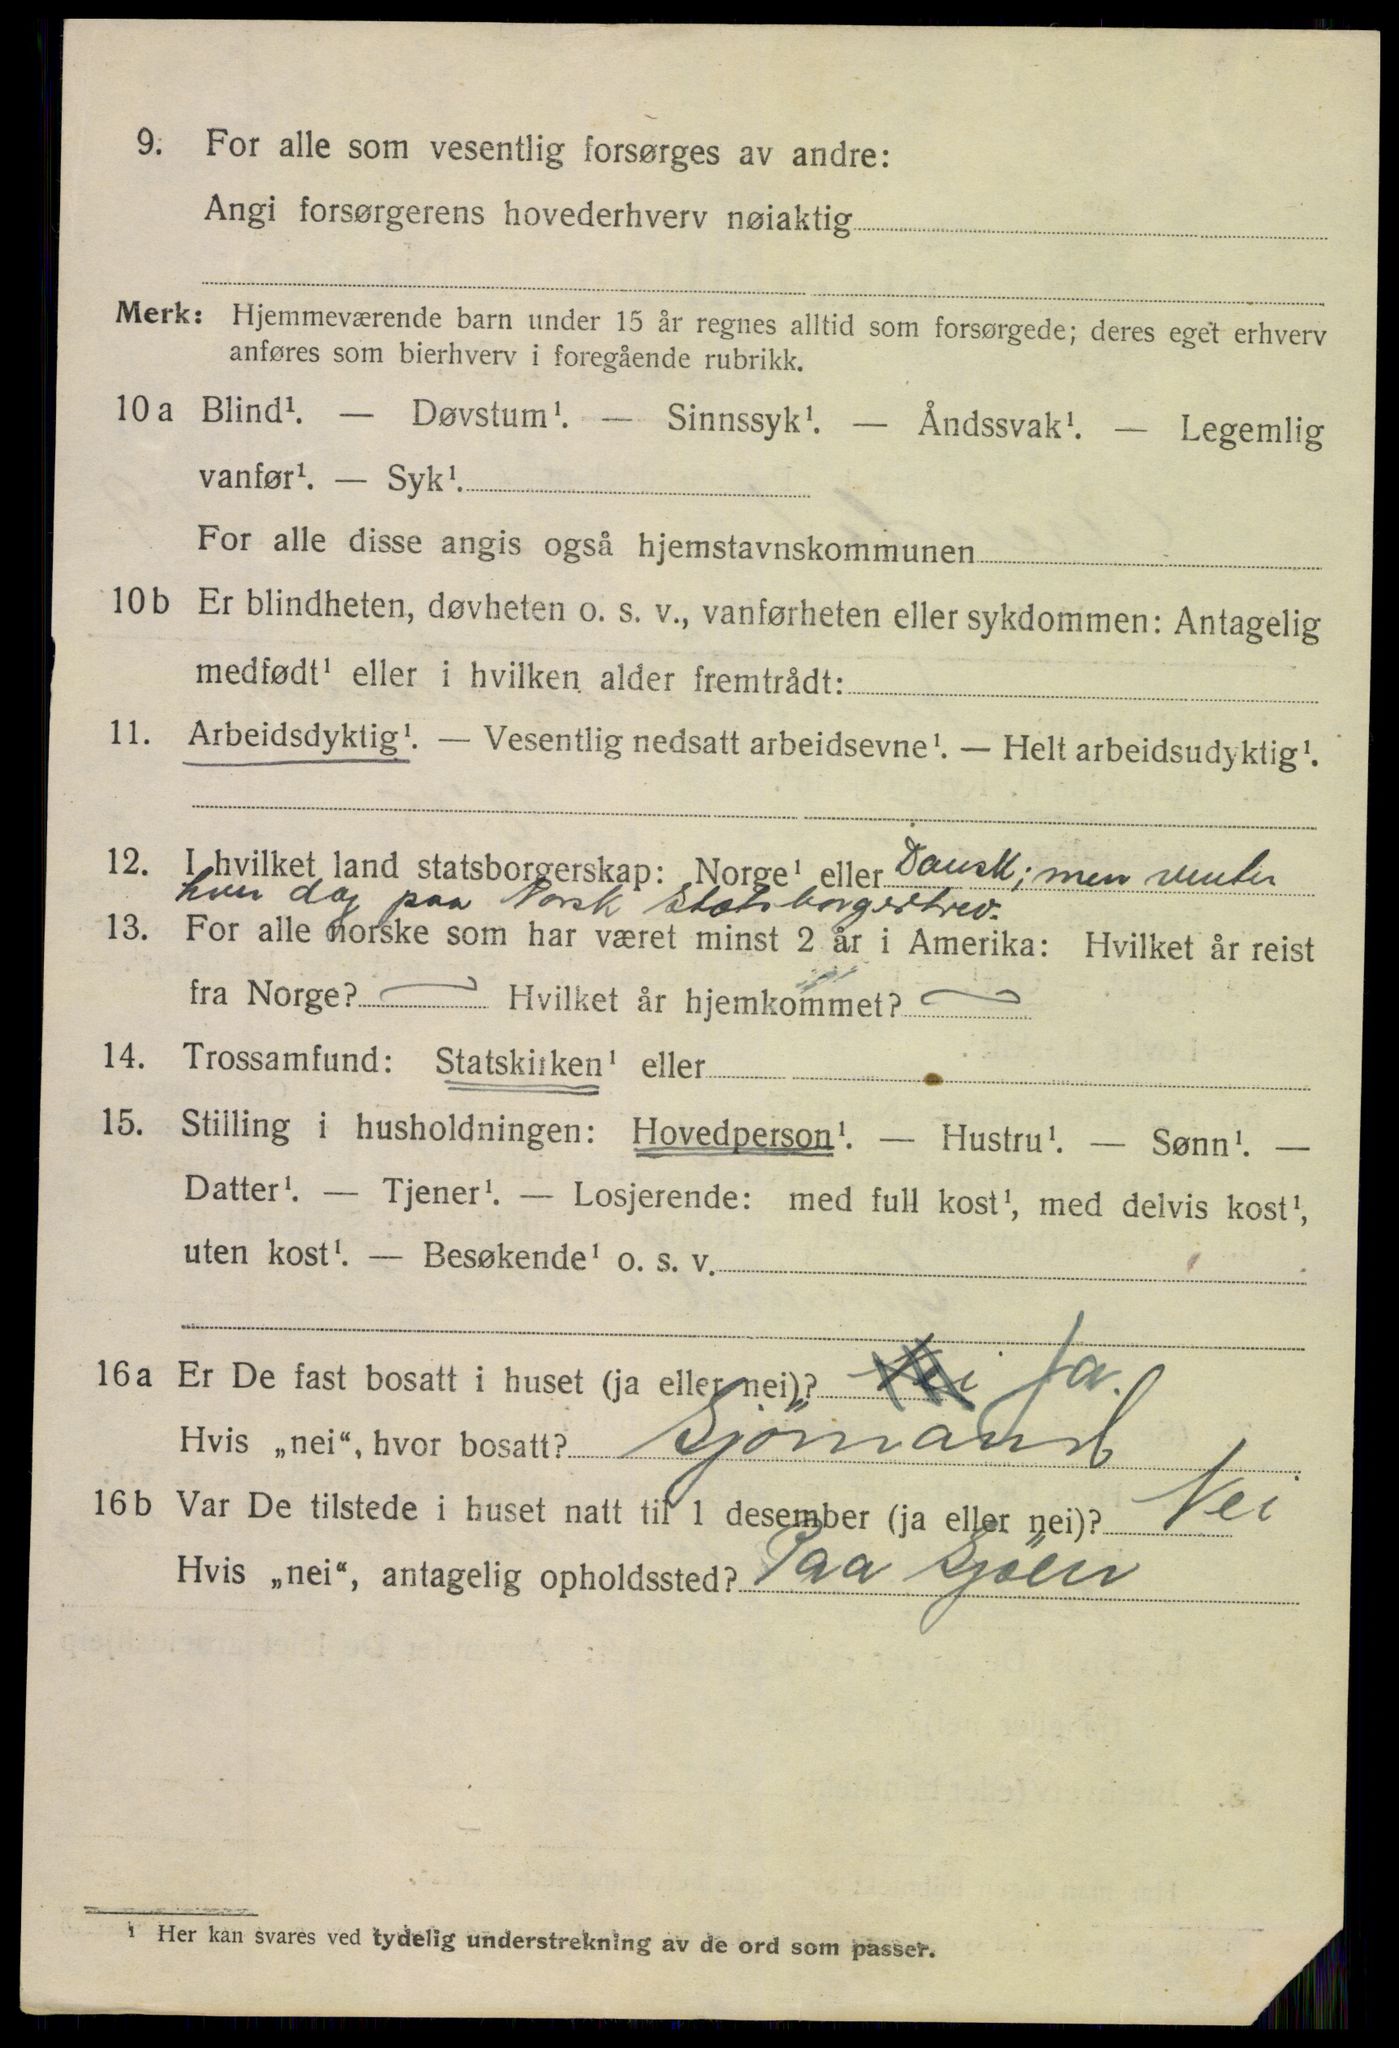 9. For alle som vesentlig forsørges av andre:
Angi forsørgerens hovederhverv nøiaktig
Merk: Hjemmeværende barn under 15 år regnes alltid som forsørgede; deres eget erhverv
anføres som bierhverv i foregående rubrikk.
10 a Blind¹. — Døvstum¹. — Sinnssyk¹. — Åndssvak¹. — Legemlig
vanfør¹. — Syk¹.
For alle disse angis også hjemstavnskommunen
10 b Er blindheten, døvheten o. s. v., vanførheten eller sykdommen: Antagelig
medfødt¹ eller i hvilken alder fremtrådt:
11. Arbeidsdyktig¹. — Vesentlig nedsatt arbeidsevne¹. — Helt arbeidsudyktig¹.
12. I hvilket land statsborgerskap: Norge¹ eller Dansk; men venter
hver dag paa Norsk Statsborgerbrev.
13. For alle norske som har været minst 2 år i Amerika: Hvilket år reist
fra Norge? Hvilket år hjemkommet?
14. Trossamfund: Statskirken¹ eller
15. Stilling i husholdningen: Hovedperson¹. — Hustru¹. — Sønn¹. —
Datter¹. — Tjener¹. — Losjerende: med full kost¹, med delvis kost¹,
uten kost¹. — Besøkende¹ o. s. v.
16 a Er De fast bosatt i huset (ja eller nei)? Nei Ja.
Hvis „nei“, hvor bosatt? Sjömand
16 b Var De tilstede i huset natt til 1 desember (ja eller nei)? Nei
Hvis „nei“, antagelig opholdssted? Paa Sjöen
¹ Her kan svares ved tydelig understrekning av de ord som passer.